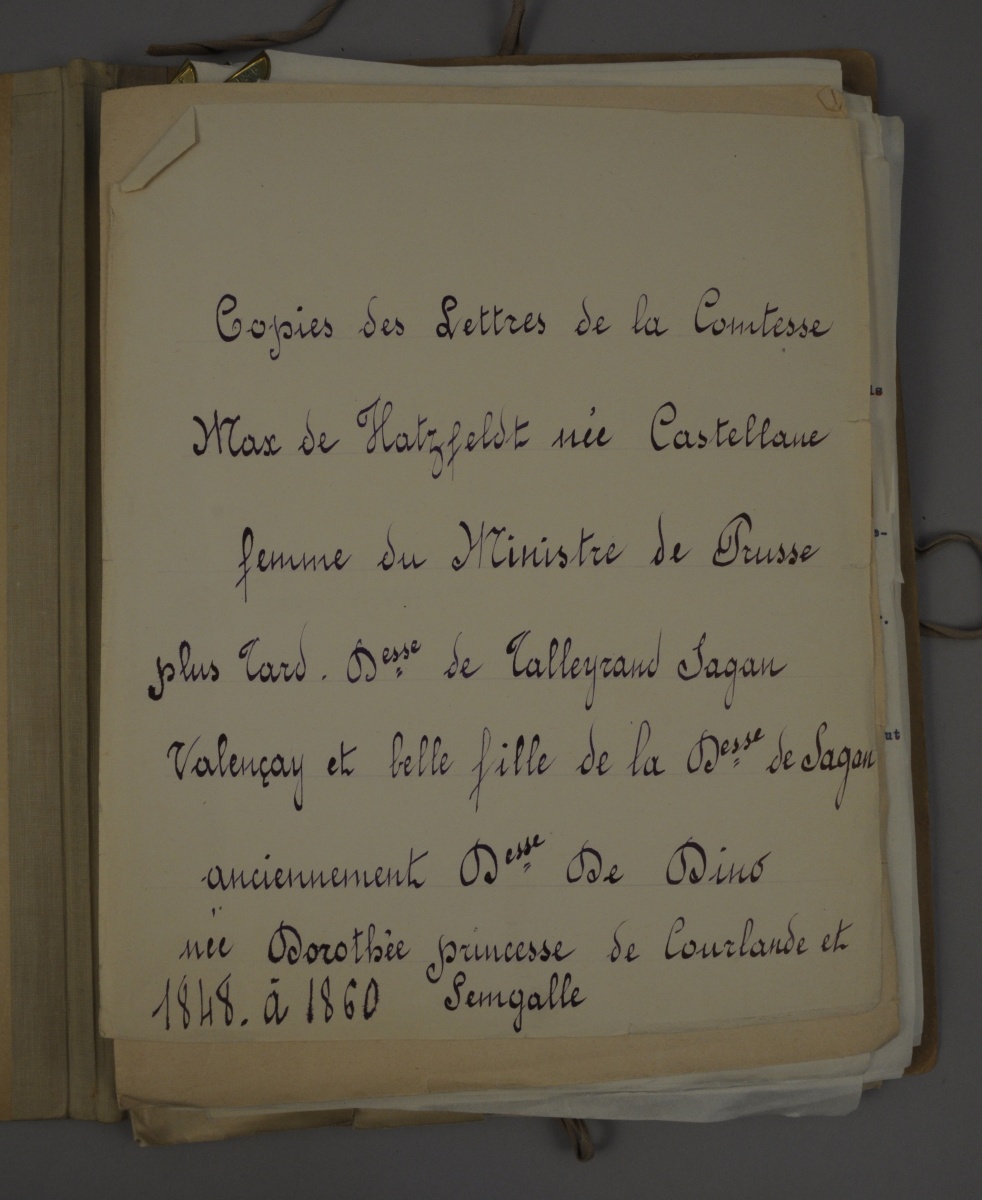 Copies des Lettres de la Comtesse
Max de Hatzfeldt née Castellane
femme du Ministre de Prusse
plus Tard. Desse de Talleyrand Sagan
Valençay et belle fille de la Desse de Sagan
anciennement Desse De Dino
née Dorothée princesse de Courlande et
1848. à 1860 Semgalle
ut